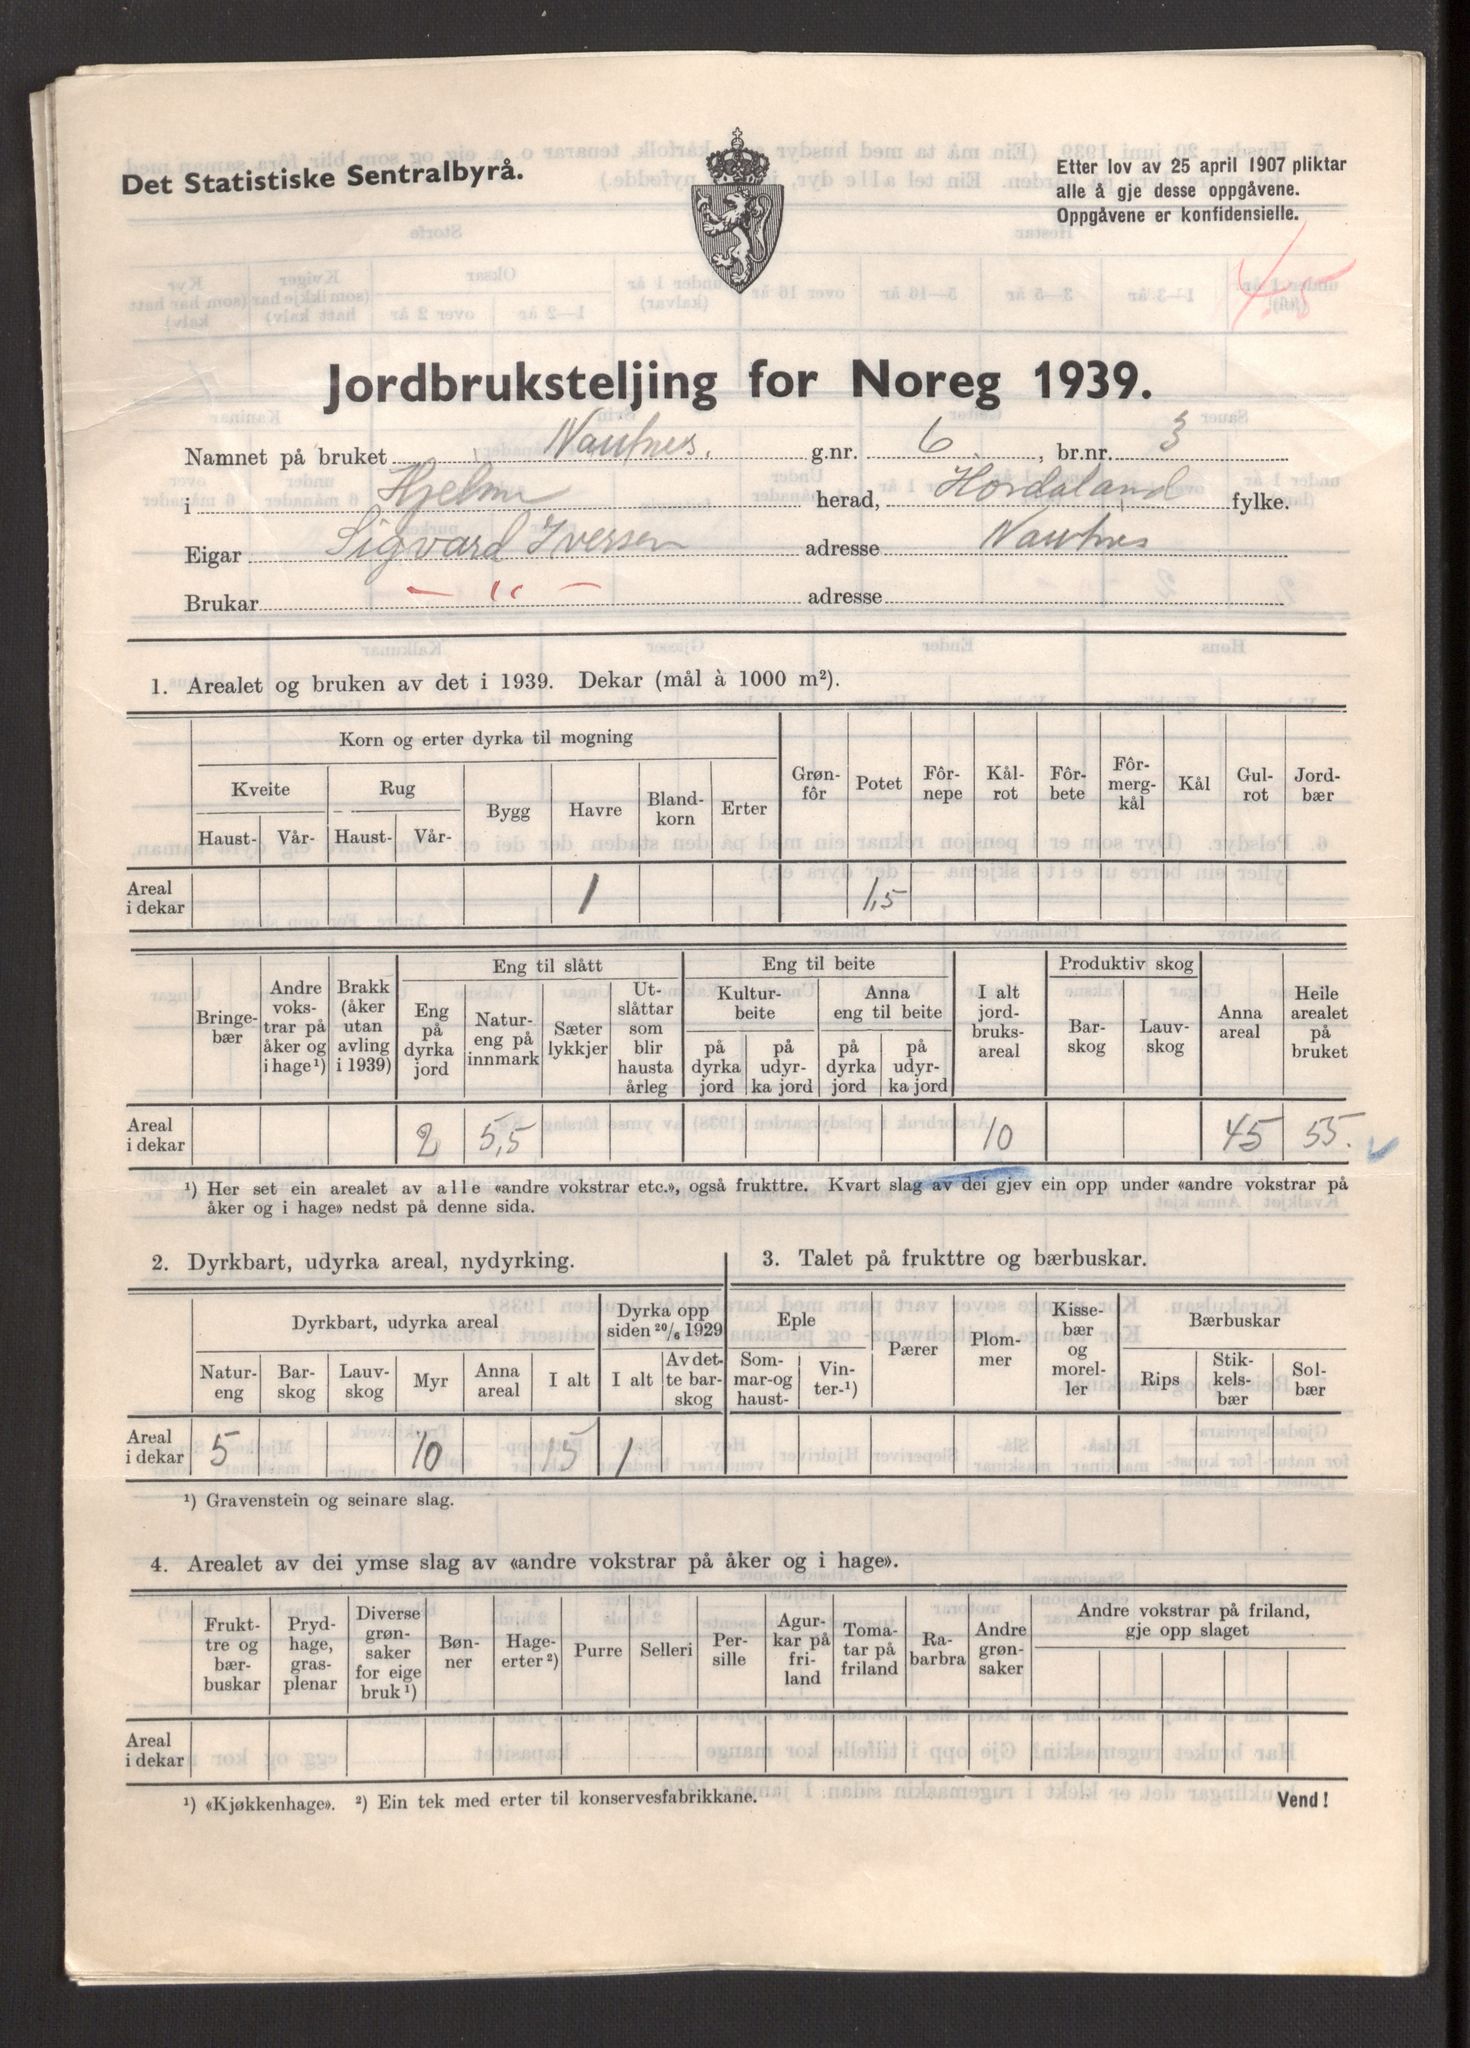 Det Statistiske Sentralbyrå.
Etter lov av 25 april 1907 pliktar
alle å gje desse oppgåvene.
Oppgåvene er konfidensielle.
Jordbruksteljing for Noreg 1939.
Namnet på bruket Nautnes. g.nr. 6, br.nr. 3
i Hjelme herad, Hordaland fylke.
Eigar Sigvard Iversen adresse Nautnes
Brukar — " — adresse
1. Arealet og bruken av det i 1939. Dekar (mål à 1000 m²).
Korn og erter dyrka til mogning
Kveite Rug Bygg Havre Bland-korn Erter Grøn-fôr Potet Fôr-nepe Kål-rot Fôr-bete Fôr-mergkål Kål Gul-rot Jord-bær
Haust- Vår- Haust- Vår-
Areal i dekar 1 1,5
Bringe-bær Andre vokstrar på åker og i hage¹) Brakk (åker utan avling i 1939) Eng til slått Eng til beite I alt jord-bruks-areal Produktiv skog Anna areal Heile arealet på bruket
Eng på dyrka jord Natur-eng på innmark Sæter lykkjer Ut-slåttar som blir hausta årleg Kultur-beite Anna eng til beite Bar-skog Lauv-skog
på dyrka jord på udyr-ka jord på dyrka jord på udyr-ka jord
Areal i dekar 2 5,5 10 45 55.
¹) Her set ein arealet av alle «andre vokstrar etc.», også frukttre. Kvart slag av dei gjev ein opp under «andre vokstrar på
åker og i hage» nedst på denne sida.
2. Dyrkbart, udyrka areal, nydyrking.
3. Talet på frukttre og bærbuskar.
Dyrkbart, udyrka areal Dyrka opp siden 20/6 1929 Eple Pærer Plom-mer Kisse-bær og morel-ler Bærbuskar
Natur-eng Bar-skog Lauv-skog Myr Anna areal I alt I alt Av det-te bar-skog Som-mar-og haust- Vin-ter-¹) Rips Stik-kels-bær Sol-bær
Areal i dekar 5 10 15 1
¹) Gravenstein og seinare slag.
4. Arealet av dei ymse slag av «andre vokstrar på åker og i hage».
Frukt-tre og bær-buskar Pryd-hage, gras-plenar Diverse grøn-saker for eige bruk¹) Bøn-ner Hage-erter²) Purre Selleri Per-sille Agur-kar på fri-land Toma-tar på friland Ra-barbra Andre grøn-saker Andre vokstrar på friland, gje opp slaget
Areal i dekar
¹) «Kjøkkenhage». ²) Ein tek med erter til konservesfabrikkane.
Vend!